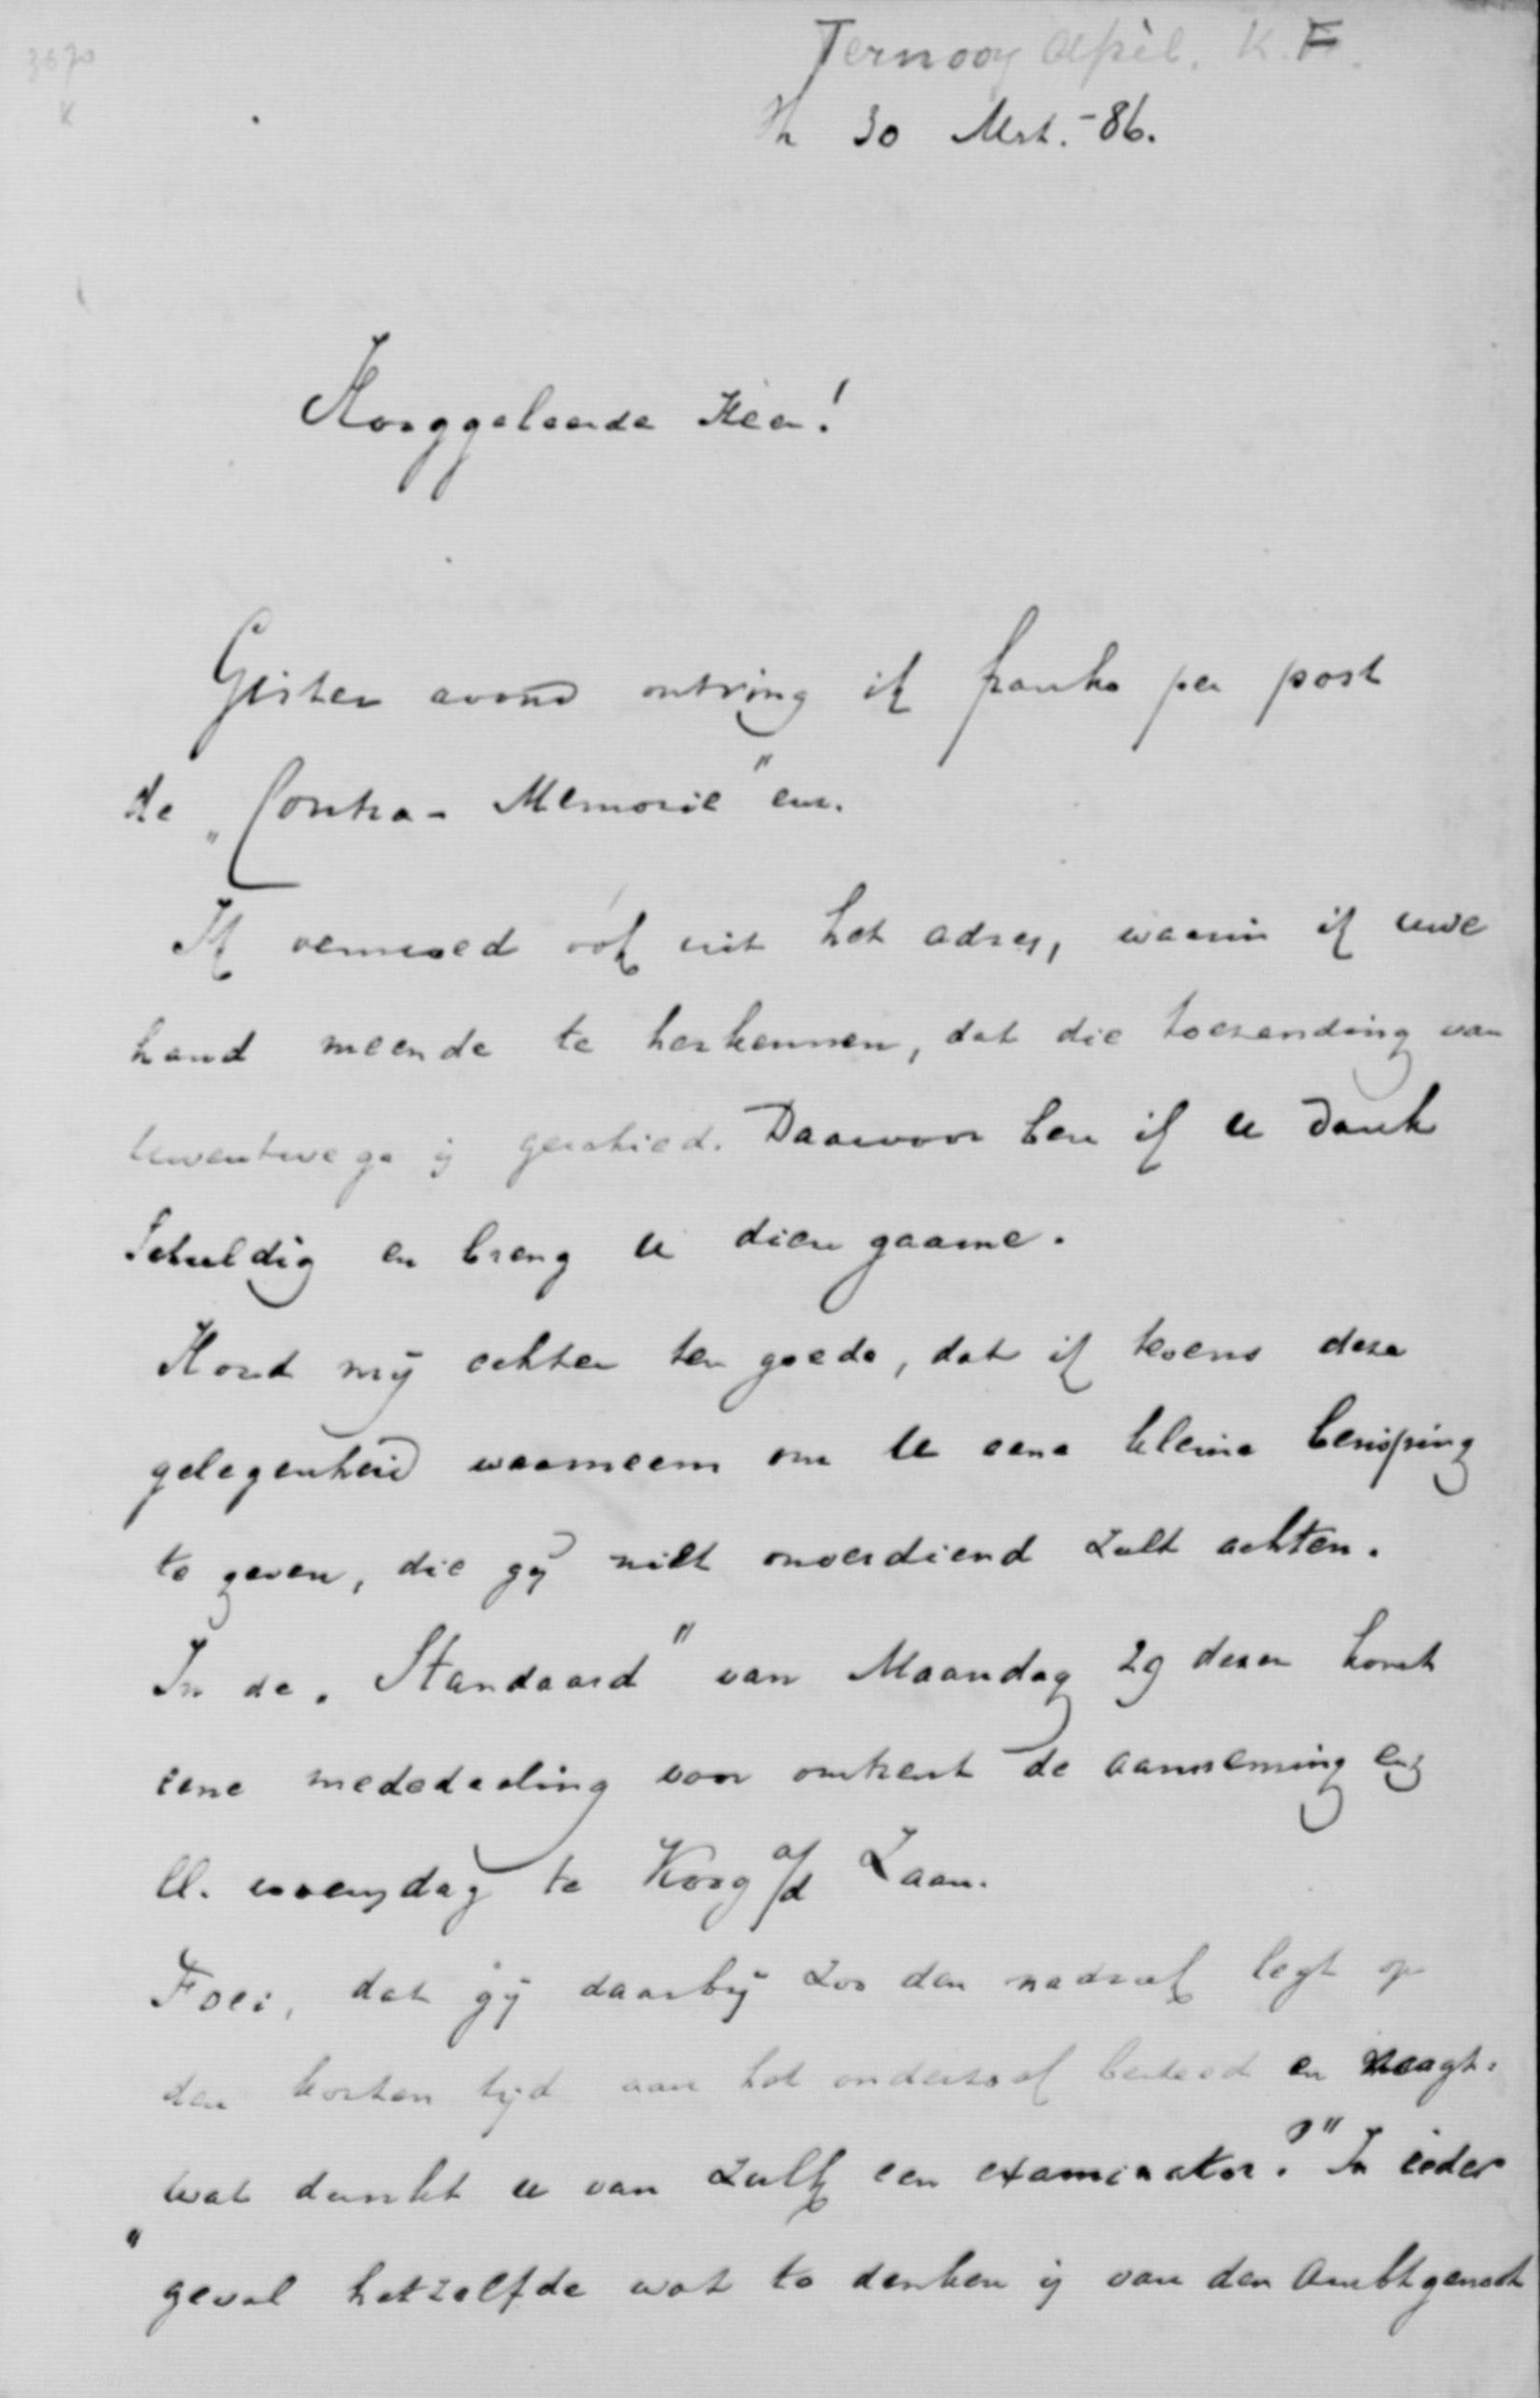 3670
K
Ternooy Apèl. K. F.
30 Mrt. -86.
Hooggeleerde Heer!
Gister avond ontving ik franko per post
de „Contra-Memorie" enz.
Ik vermoed ook uit het adres, waarin ik uwe
hand meende te herkennen, dat die toezending van
Uwentwege is geschied. Daarvoor ben ik U dank
schuldig en breng U dien gaarne.
Houd mij echter ten goede, dat ik tevens deze
gelegenheid waarneem om U eene kleine berisping
te geven, die gij niet onverdiend zult achten.
In de „Standaard" van Maandag 29 dezer komt
eene mededeeling voor omtrent de aanneming enz
ll. woensdag te Koog a/d Zaan.
Foei, dat gij daarbij zoo den nadruk legt op
den korten tijd aan het onderzoek besteed en vraagt:
„wat dunkt u van zulk een examinator?" In ieder
geval hetzelfde wat te denken is van den Ambtgenoot